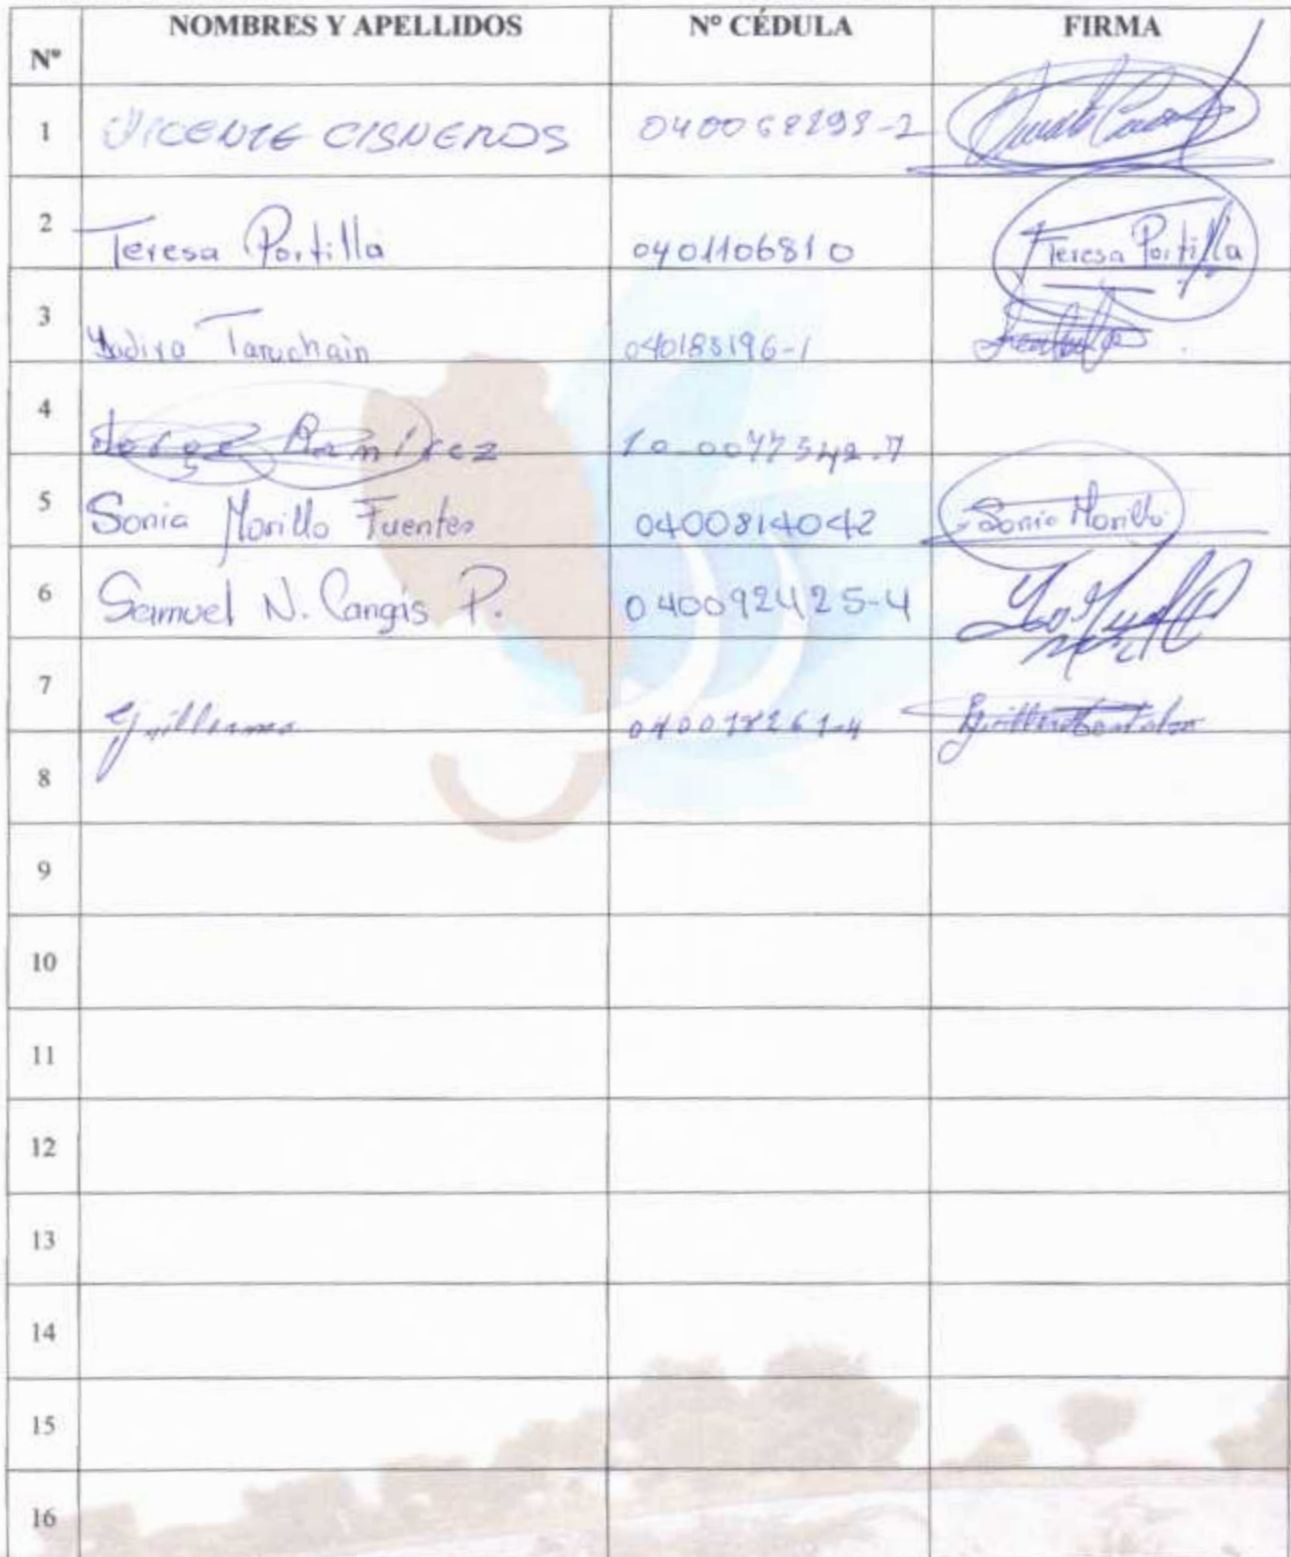 Nº NOMBRES Y APELLIDOS Nº CÉDULA FIRMA
1 VICENTE CISNEROS
2 Teresa Portilla 0401106810 Teresa Portilla
3 Yadira Taruchain 040188196-1
4 Jorge Ramírez 10 0077542-7
5 Sonia Morillo Fuentes 0400814042 Sonia Morillo
6 Samuel N. Cangás P. 040092425-4
7 Guillermo
8
9
10
11
12
13
14
15
16